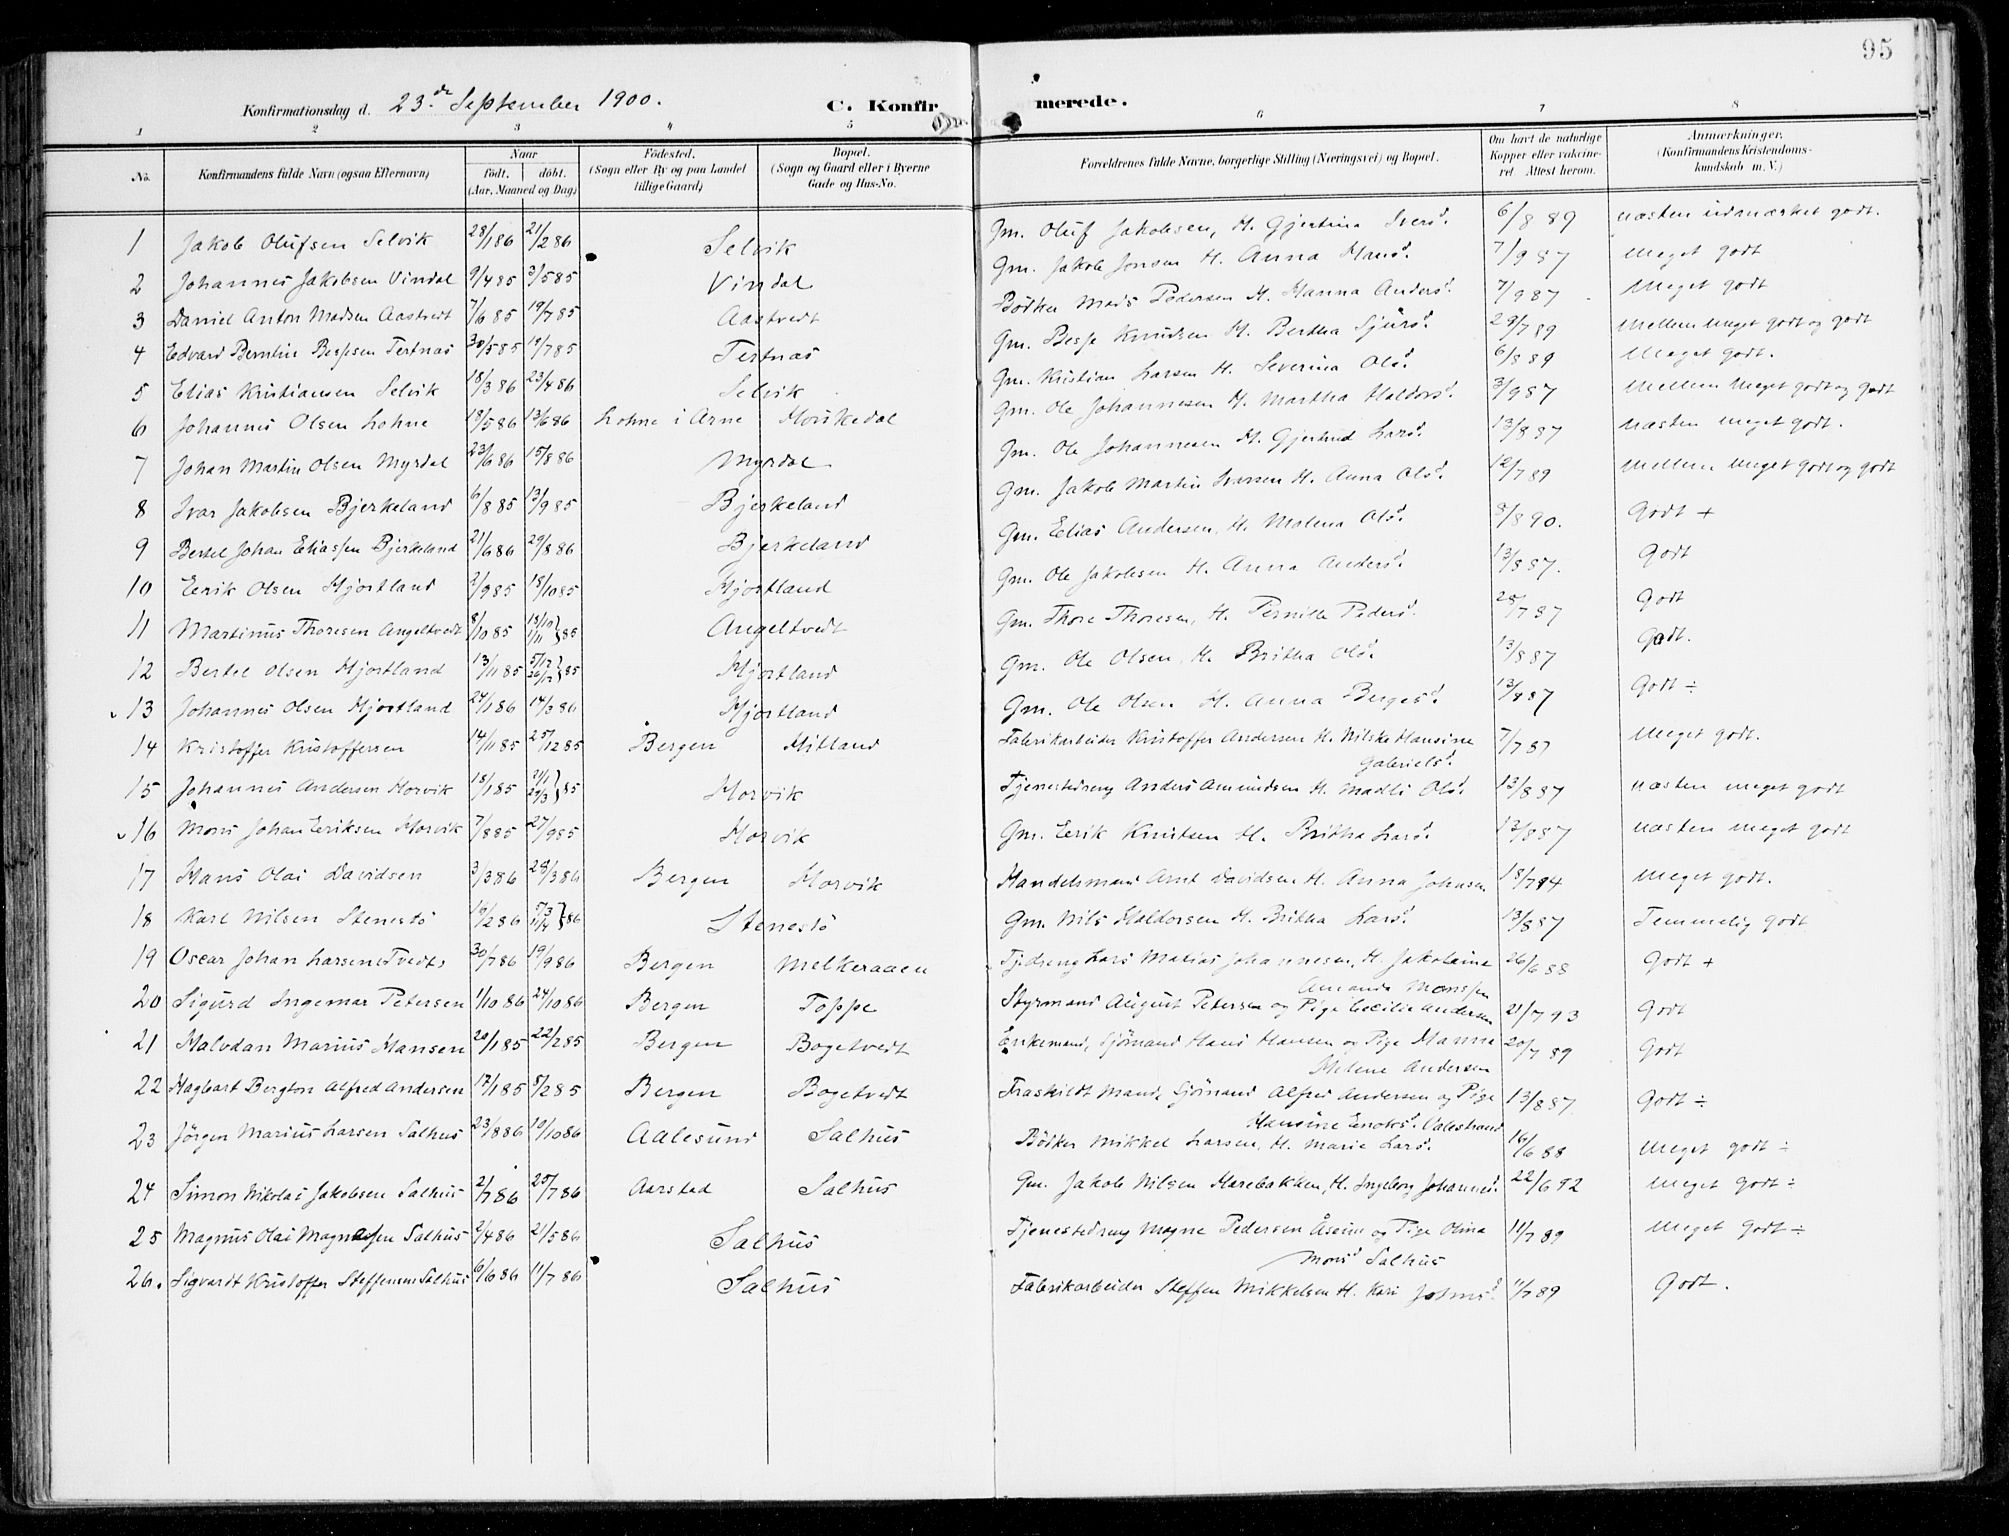 95
Konfirmationsdag d. 23.de September 1900. C. Konfirmerede.
1 2 3 4 5 6 7 8
No. Konfirmandens fulde Navn (ogsaa Efternavn) Naar födt. döbt. (Aar, Maaned og Dag) Födested. (Sogn eller By og paa Landet tillige Gaard) Bopæl. (Sogn og Gaard eller i Byerne Gade og Hus-No. Forældrenes fulde Navne, borgerlige Stilling (Næringsvei) og Bopæl. Om havt de naturlige Kopper eller vakcineret Attest herom. Anmærkninger. (Konfirmandens Kristendomskundskab m. V.)
1 Jakob Olufsen Selvik 28/1 86 21/2 86 Selvik Gm. Oluf Jakobsen, H. Gjertina Iversd. 6/8 89 næsten udmærket godt.
2 Johannes Jakobsen Vindal 9/4 85 3/5 85 Vindal Gm. Jakob Jonsen H. Anna Hansd. 7/9 87 Meget godt
3 Daniel Anton Madsen Aastvedt 7/6 85 19/7 85 Aastvedt Bödker Mads Pedersen H. Hanna Andersd. 7/9 87 Meget godt
4 Edvard Berntin Bessesen Tertnæs 30/5 85 19/7 85 Tertnæs Gm. Besse Knudsen H. Bertha Sjursd. 29/7 89 Mellem Meget godt og godt
5 Elias Kristiansen Selvik 18/3 86 23/4 86 Selvik Gm. Kristian Larsen H. Severina Olsd. 6/8 89 Meget godt.
6 Johannes Olsen Lohne 18/5 86 13/6 86 Lohne i Arne Houkedal Gm. Ole Johannesen H. Martha Haldorsd. 3/9 87 Mellem Meget godt og godt
7 Johan Martin Olsen Myrdal 23/6 86 15/8 86 Myrdal Gm. Ole Johannesen H. Gjertrud Larsd. 13/8 87 næsten meget godt.
8 Ivar Jakobsen Bjerkeland 6/8 85 13/9 85 Bjerkeland Gm. Jakob Martin Iversen H. Anna Olsd. 12/7 89 Mellem Meget godt og godt
9 Bertel Johan Eliassen Bjerkeland 21/6 86 29/8 86 Bjerkeland Gm. Elias Andersen, H. Malena Olsd. 8/8 90. Godt +
10 Eerik Olsen Hjortland 2/9 85 18/10 85 Hjortland Gm. Ole Jakobsen H. Anna Andersd. 13/8 87. Godt
11 Martinus Thoresen Angeltvedt 8/10 85 18/10 1/11 } 85 Angeltvedt Gm. Thore Thoresen, H. Pernille Pedersd. 25/7 87 Godt
12 Bertel Olsen Hjortland 13/11 85 5/12 26/12 } 85 Hjortland Gm. Ole Olsen, H. Britha Olsd. 13/8 87 Godt.
13 Johannes Olsen Hjortland 24/1 86 14/3 86 Hjortland Gm. Ole Olsen H. Anna Bergesd. 13/8 87 Godt ÷
14 Kristoffer Kristoffersen 14/11 85 25/12 85 Bergen Hilland Fabrikarbeider Kristoffer Andersen H. Nilske Hansine Gabrielsd. 7/7 87 Meget godt.
15 Johannes Andersen Horvik 18/1 85 Horvik Tjenestedreng Anders Amundsen H. Madli Olsd. 13/8 87 næsten meget godt
16 Mons Johan Eeriksen Horvik 7/8 85 27/9 85 Horvik Gm. Eerik Knutsen H. Britha Larsd. 13/8 87 næsten meget godt
17 Hans Olai Davidsen 3/3 86 28/3 86 Bergen Horvik Handelsmand Arnt Davidsen H. Anna Johnsen 18/7 94 Meget godt.
18 Karl Nilsen Stenestö 16/2 86 5/3 11/4 } 86 Stenestö Gm. Nils Haldorsen H. Britha Larsd. 13/8 87 Temmelig godt
19 Oscar Johan Larsen Tvedt 30/7 86 19/9 86 Bergen Melkeraaen Tjdreng Lars Matias Johannesen, H. Jakobine Amanda Monssen 26/6 88 Godt +
20 Sigurd Ingemar Petersen 1/10 86 24/10 86 Bergen Toppe Styrmand August Petersen og Pige Cecilie Andersen 21/7 93 Godt
21 Halvdan Marius Hansen 20/1 85 22/2 85 Bergen Bogetvedt Enkemand, Sjömand Hans Hansen og Pige Hanna Melene Andersen 20/7 89 Godt
22 Hagbart Bergton Alfred Andersen 17/1 85 5/2 85 Bergen Bogetvedt Fraskildt Mand, Sjömand Alfred Andersen og Pige Hansine Enoksd. Valestrand 13/8 87. Godt ÷
23 Jörgen Marius Larsen Salhus 23/8 86 10/10 86 Aalesund Salhus Bödker Mikkel Larsen, H. Marie Larsd. 16/6 88 Meget godt ÷
24 Simon Nikolai Jakobsen Salhus 2/7 86 25/7 86 Aarstad Salhus Gm. Jakob Nilsen Harebakken, H. Ingeborg Johannesd. 22/6 92 Meget godt ÷
25 Magnus Olai Magnussen Salhus 2/4 86 21/5 86 Salhus Tjenestedreng Magne Pedersen Åseim og Pige Olina Monsd. Salhus 11/7 89 Meget Godt ÷
26. Sigvardt Kristoffer Steffensen Salhus 6/6 86 11/7 86 Salhus Fabrikarbeider Steffen Mikkelsen H. Kari Johnsd. 11/7 89 Godt.